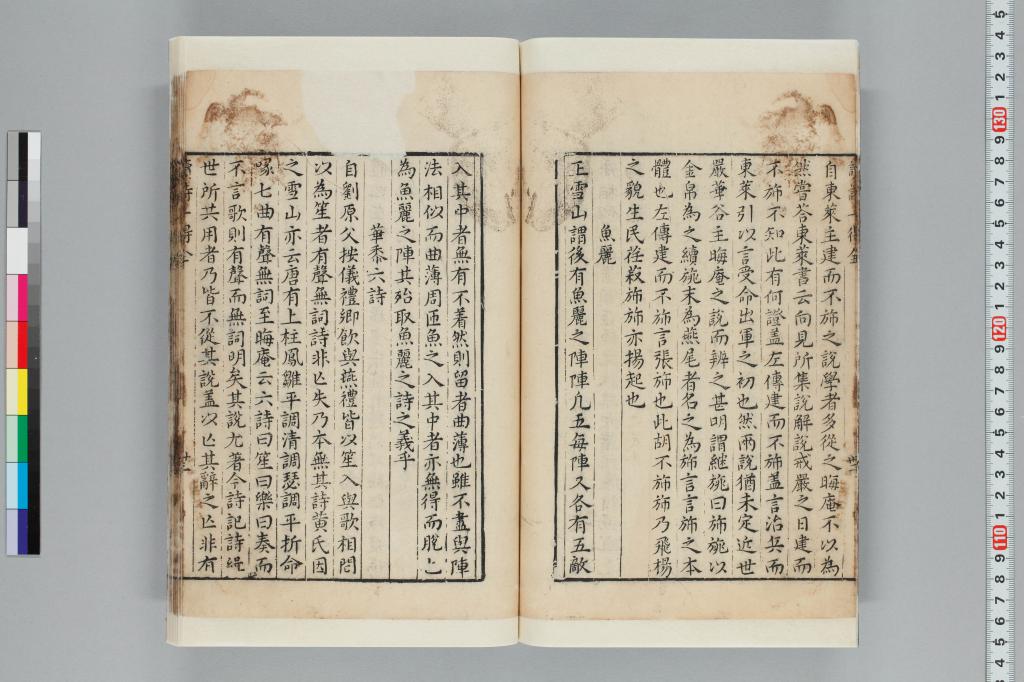 自東萊主建而不斾之說學者多從之晦庵不以為
然嘗荅東萊書云向見所集說解說戒嚴之日建而
不斾不知此有何證盖左傳建而不斾盖言治兵而
東萊引以言受命出軍之初也然兩說猶未定近世
嚴華谷主晦庵之說而辨之甚明謂継旐曰斾旐以
金帛為之續旐末為燕尾者名之為斾言言斾之本
體也左傳建而不斾言張斾也此胡不斾斾乃飛楊
之貌生民荏菽斾斾亦揚起也
魚麗
王雪山謂後有魚麗之陣陣凡五每陣又各有五敵
入其中者無有不着然則留者曲薄也雖不盡與陣
法相似而曲薄周匝魚之入其中者亦無得而脫亡
為魚麗之陣其殆取魚麗之詩之義乎
華黍六詩
自劉原父按儀禮鄉飲與燕禮皆以笙入與歌相間
以為笙者有聲無詞詩非亾失乃本無其詩黄氏因
之雪山亦云唐有上柱鳳雛平調清調瑟調平折命
喙七曲有聲無詞至晦庵云六詩曰笙曰樂曰奏而
不言歌則有聲而無詞明矣其說尤著今詩記詩緝
世所共用者乃皆不從其說盖以亾其辭之亾非有